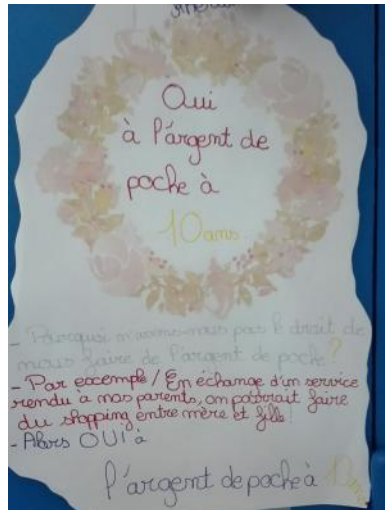 Oui
à l'argent de
poche à
10 ans
- Pourquoi n'avons-nous pas le droit de
nous faire de l'argent de poche ?
- Par exemple / En échange d'un service
rendu à nos parents, on pourrait faire
du shopping entre mère et fille !
- Alors OUI à
l'argent de poche à 10 ans